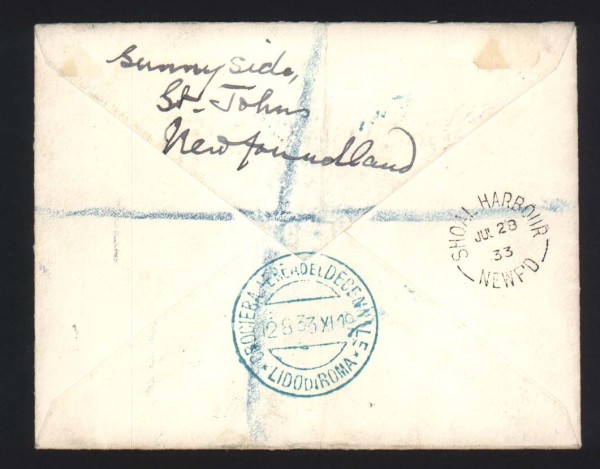 Sunny Side,
St. Johns
Newfoundland
SHOAL HARBOUR
JUL 28
33
NEWF'D
CROCIERA AEREA DEL DECENNALE
12 8 33 XI 19
* LIDO DI ROMA *